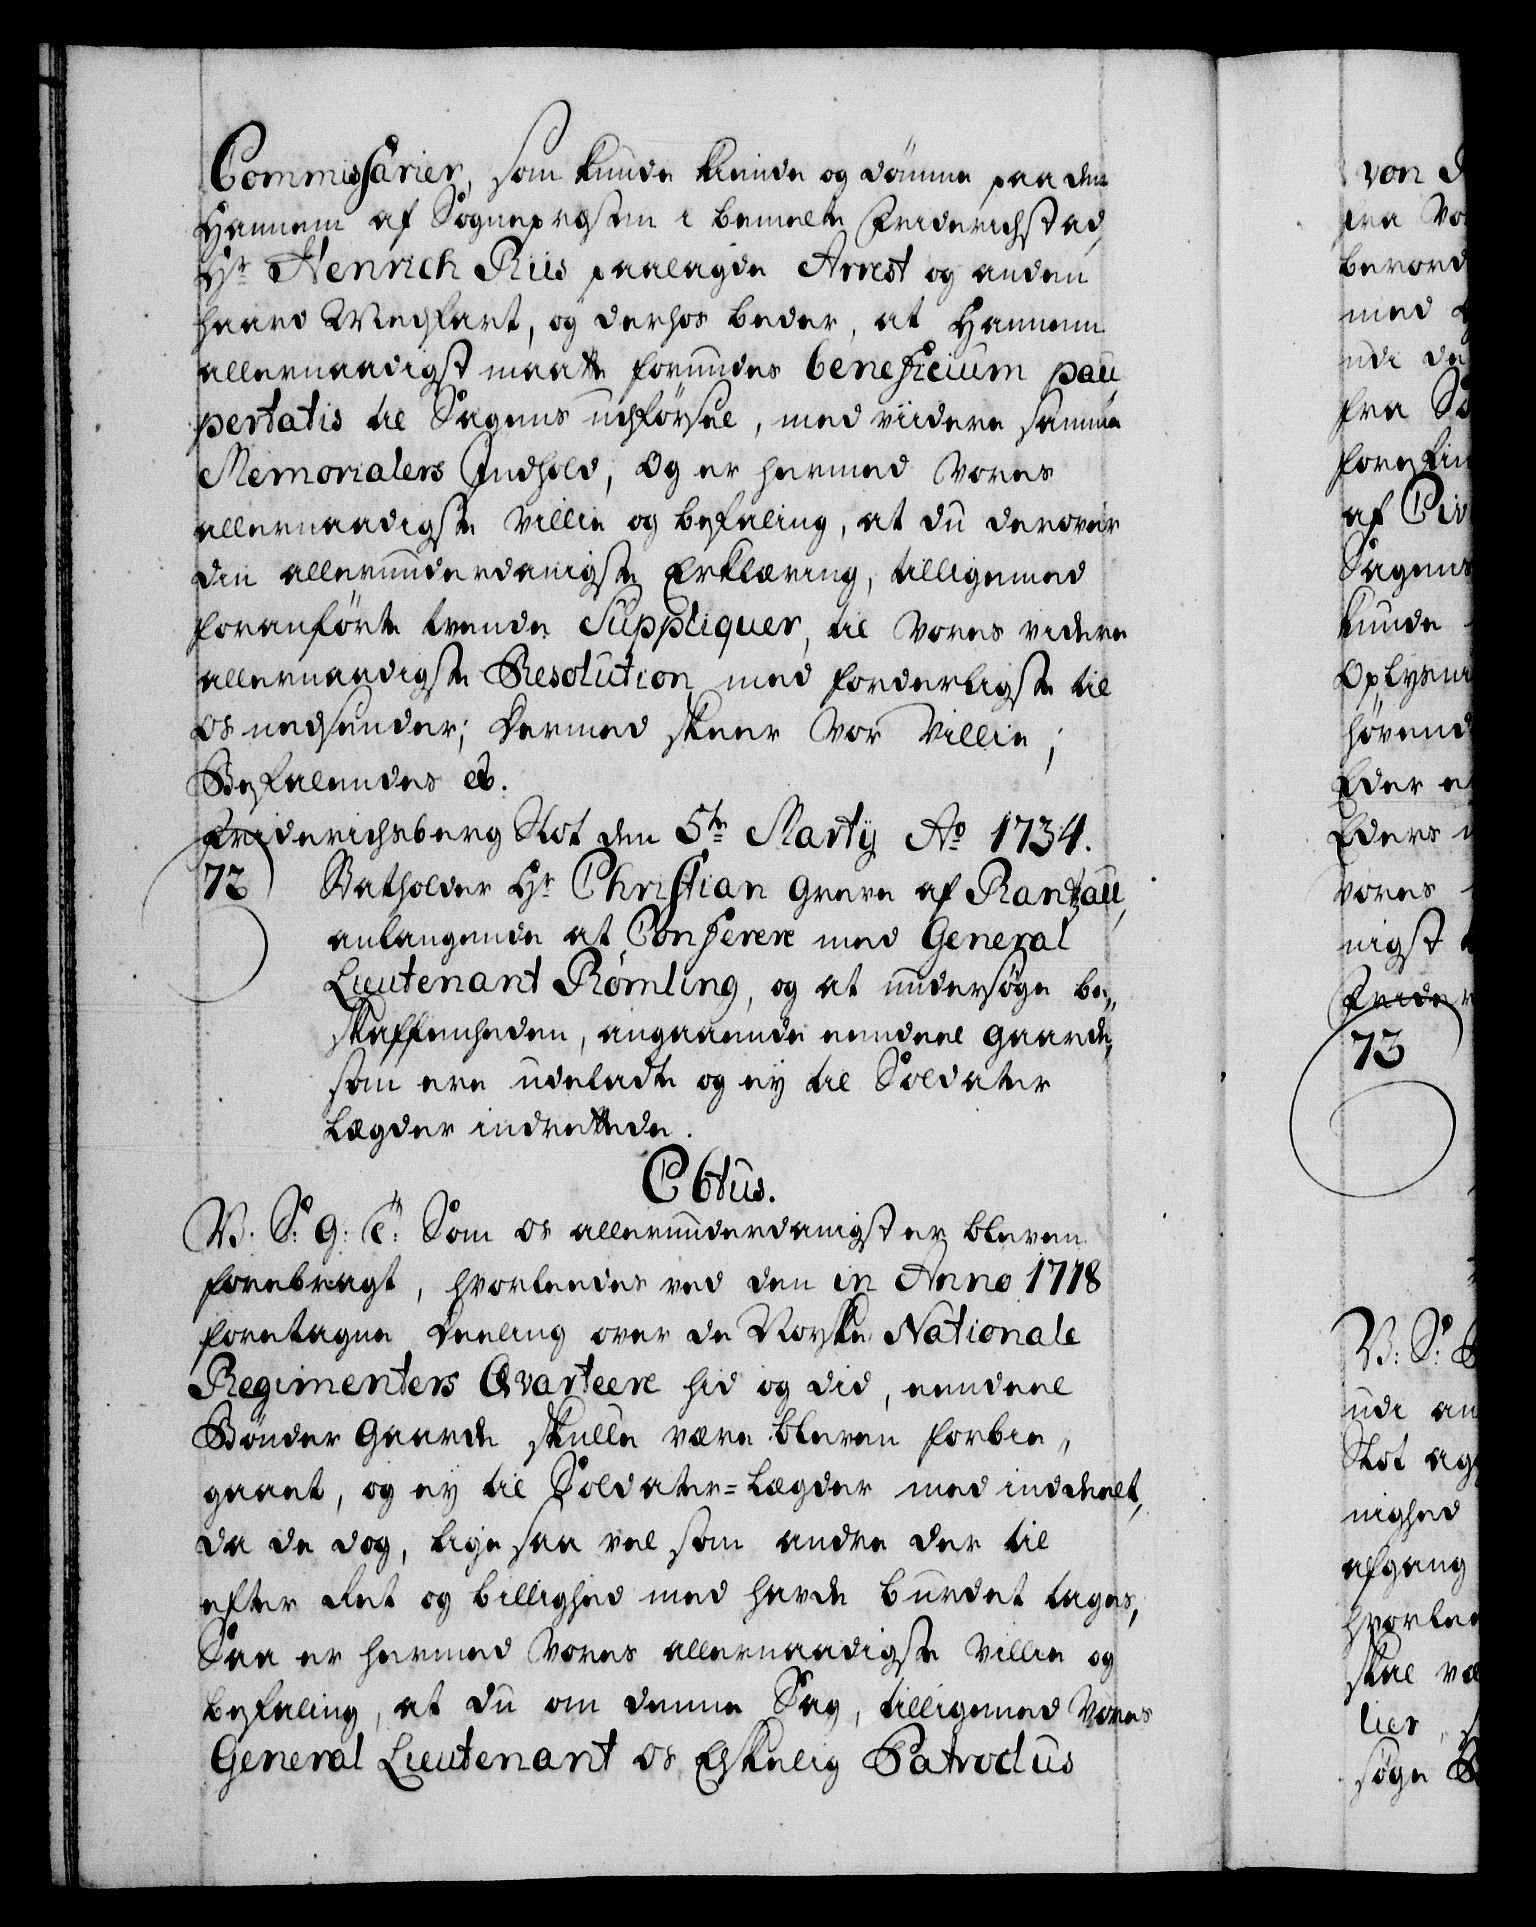 Commissarier, som kunde kiende og dömme paa den
Hannem af Sognepræsten i bemelte Friderichstad,
Hr Henrich Riis paalagde Arrest og anden
haard Medfart, og derhos beder, at Hannem
allernaadigst maatte forundes beneficium pau
pertatis til Sagens udförsel, med viidere samme
Memorialers Indhold, Og er hermed Vores
allernaadigste Villie og befaling, at du derover
din allerunderdanigste Erklæring, tilligemed
foranförte tvende Suppliquer, til Vores videre
allernaadigste Resolution med forderligste til
os nedsender; Dermed skeer Vor Villie;
Befalendes &.
Friderichsberg Slot den 5te Martÿ Ao 1734.
72 Statholder Hr Christian Greve af Rantzau,
anlangende at Conferere med General
Lieutenant Römling, og at undersøge be„
skaffenheden, angaaende eendeel Gaarde,
som ere udeladte og ey til Soldater
Lægder indrettede.
C 6tus.
V. S: G: T: Som os allerunderdanigst er bleven
forebragt, hvorledes ved den in Anno 1718
foretagne Deeling over de Norske Nationale
Regimenters Qvarteere hid og did, eendeel
Bönder Gaarde skulle være bleven forbie„
gaaet, og ey til Soldater=Lægder med inddeelt,
da de dog, lige saa vel som andre der til
efter Ret og billighed med havde burdet tages,
Saa er hermed Vores allernaadigste Villie og
befaling, at du om denne Sag, tilligemed Vores
General Lieutenant os Elskelig Patroclus
von
fra Vo
berord
med
udi de
fra So
foreskin
af Civ
Sagens
kunde
Oplysni
hörend
Eder e
Eders
Vores
nigst
Frider
73
V: S:
udi an
Slot ag
nighed
afgang
hvorlee
skal væ
lier,
söge